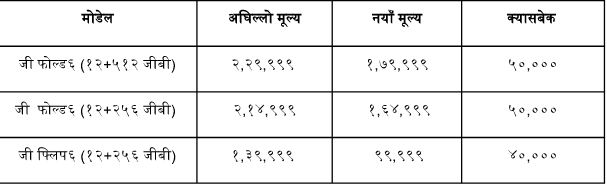 मोडेल अघिल्लो मूल्य नयाँ मूल्य क्यासबेक
जी फोल्ड६ (१२+५१२ जीबी) २,२९,९९९ १,७९,९९९ ५०,०००
जी फोल्ड६ (१२+२५६ जीबी) २,१४,९९९ १,६४,९९९ ५०,०००
जी फ्लिप६ (१२+२५६ जीबी) १,३९,९९९ ९९,९९९ ४०,०००